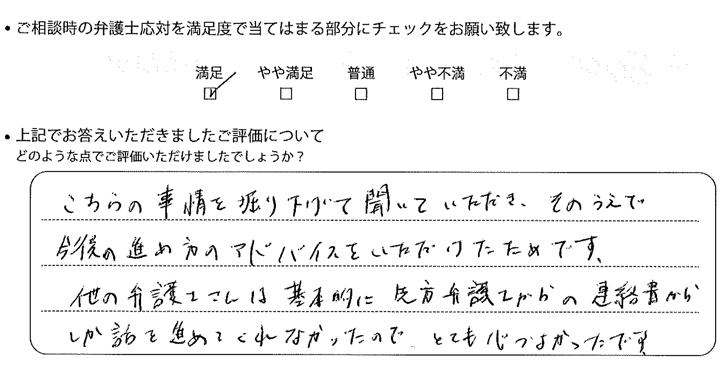 • ご相談時の弁護士応対を満足度で当てはまる部分にチェックをお願い致します。
満足 やや満足 普通 やや不満 不満
• 上記でお答えいただきましたご評価について
どのような点でご評価いただけましたでしょうか？
こちらの事情を掘り下げて聞いていただき、そのうえで
今後の進め方のアドバイスをいただけたためです。
他の弁護士さんは基本的に先方弁護士からの連絡書から
しか話を進めてくれなかったので、とても心づよかったです